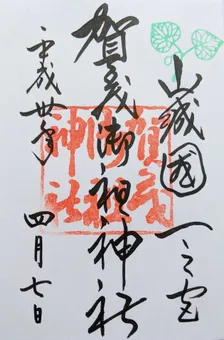 山城國一之宮
賀茂御祖神社
平成卅年四月七日
賀茂
御祖
神社